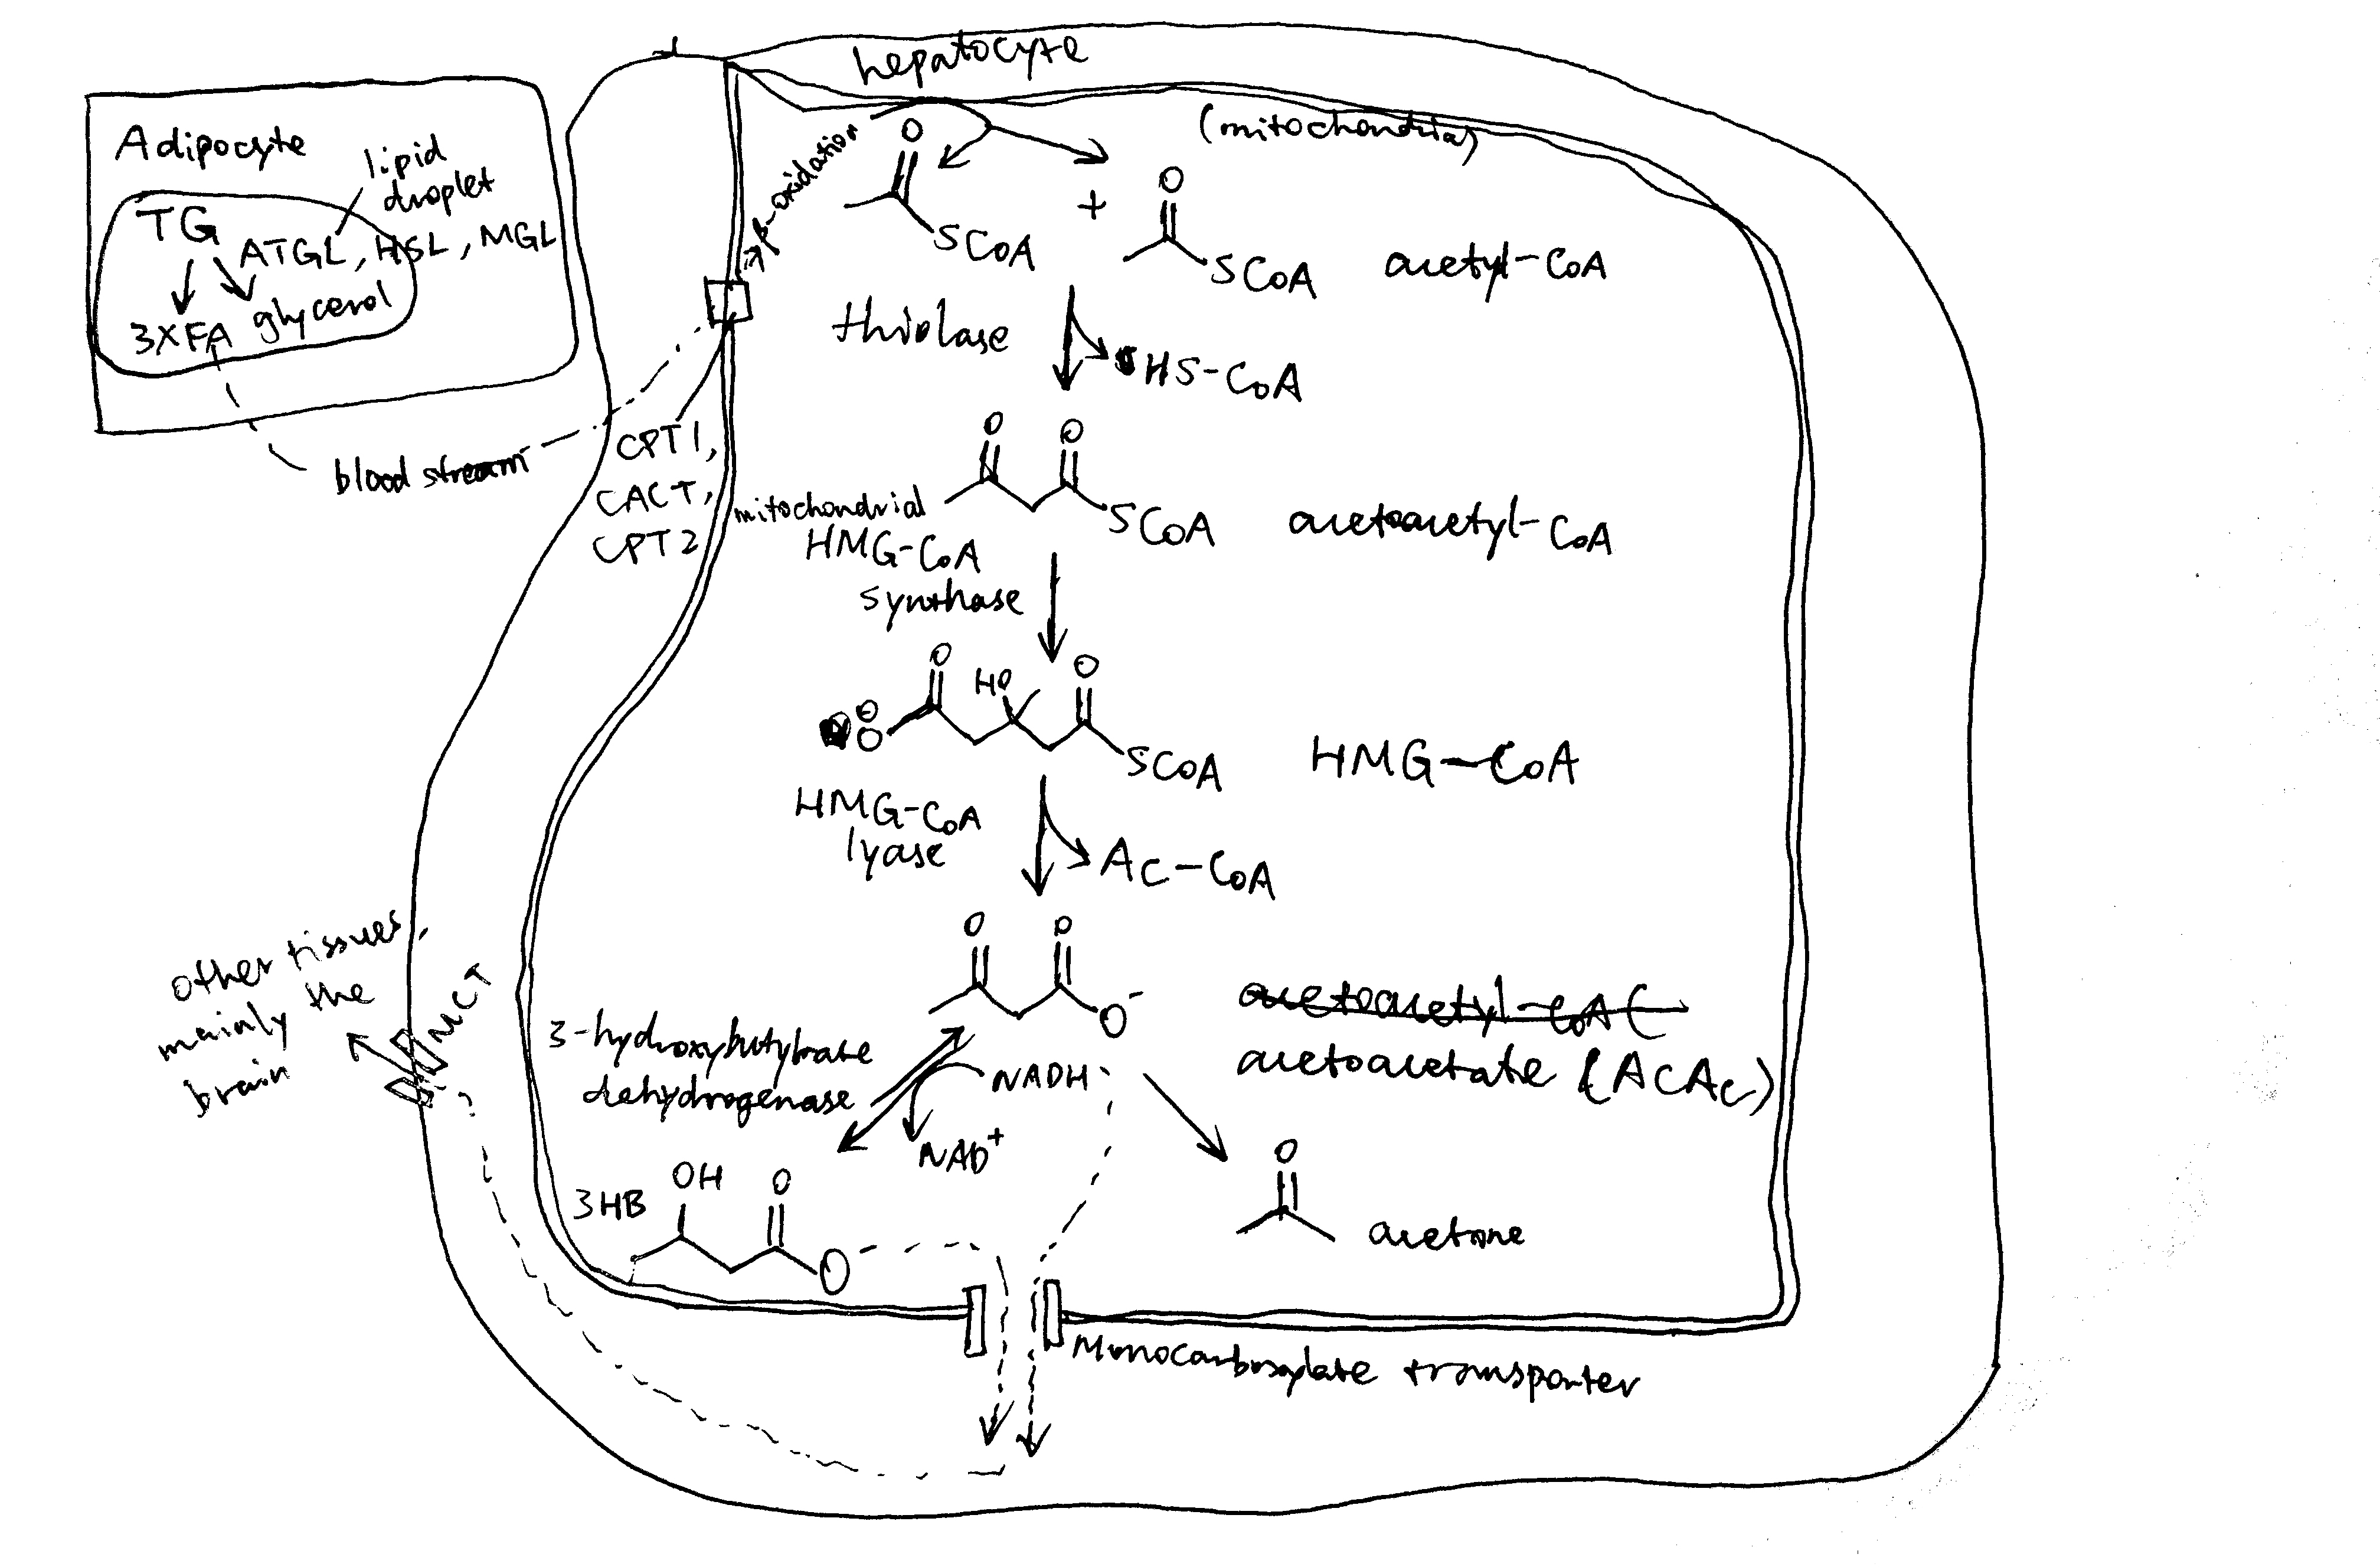 hepatocyte
(mitochondria)
Adipocyte
lipid
droplet
TG
ATGL, HSL, MGL
3XFA
glycerol
blood stream
CPT1,
CACT,
CPT2
β-oxidation
O
SCoA
+
O
SCoA
acetyl-CoA
thiolase
HS-CoA
O
O
SCoA
acetoacetyl-CoA
mitochondrial
HMG-CoA
synthase
O
HO
O
⊖
O
SCoA
HMG-CoA
HMG-CoA
lyase
Ac-CoA
O
O
O⁻
acetoacetyl-CoA (
acetoacetate (AcAc)
3-hydroxybutyrate
dehydrogenase
NADH
NAD⁺
3HB
OH
O
O
O
acetone
Monocarboxylate transporter
MCT
other tissues,
mainly the
brain